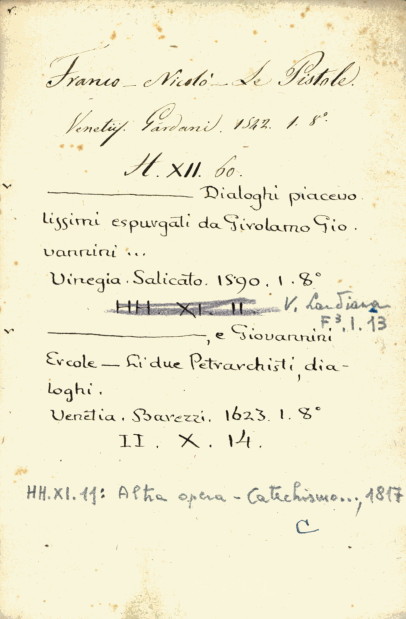 Franco - Nicolò - Le Pistole.
Venetiis. Gardani. 1542. 1. 8°.
H. XII. 60.
Dialoghi piacevo
lissimi espurgati da Girolamo Gio
vannini ...
Vinegia. Salicato. 1590. 1. 8°
HH. XI. 11. V. Landiana
F³. 1. 13
, e Giovannini
Ercole — Li due Petrarchisti, dia-
loghi.
Venetia. Barezzi. 1623. 1. 8°
II. X. 14.
HH.XI.11: Altra opera - Catechismo..., 1817
C